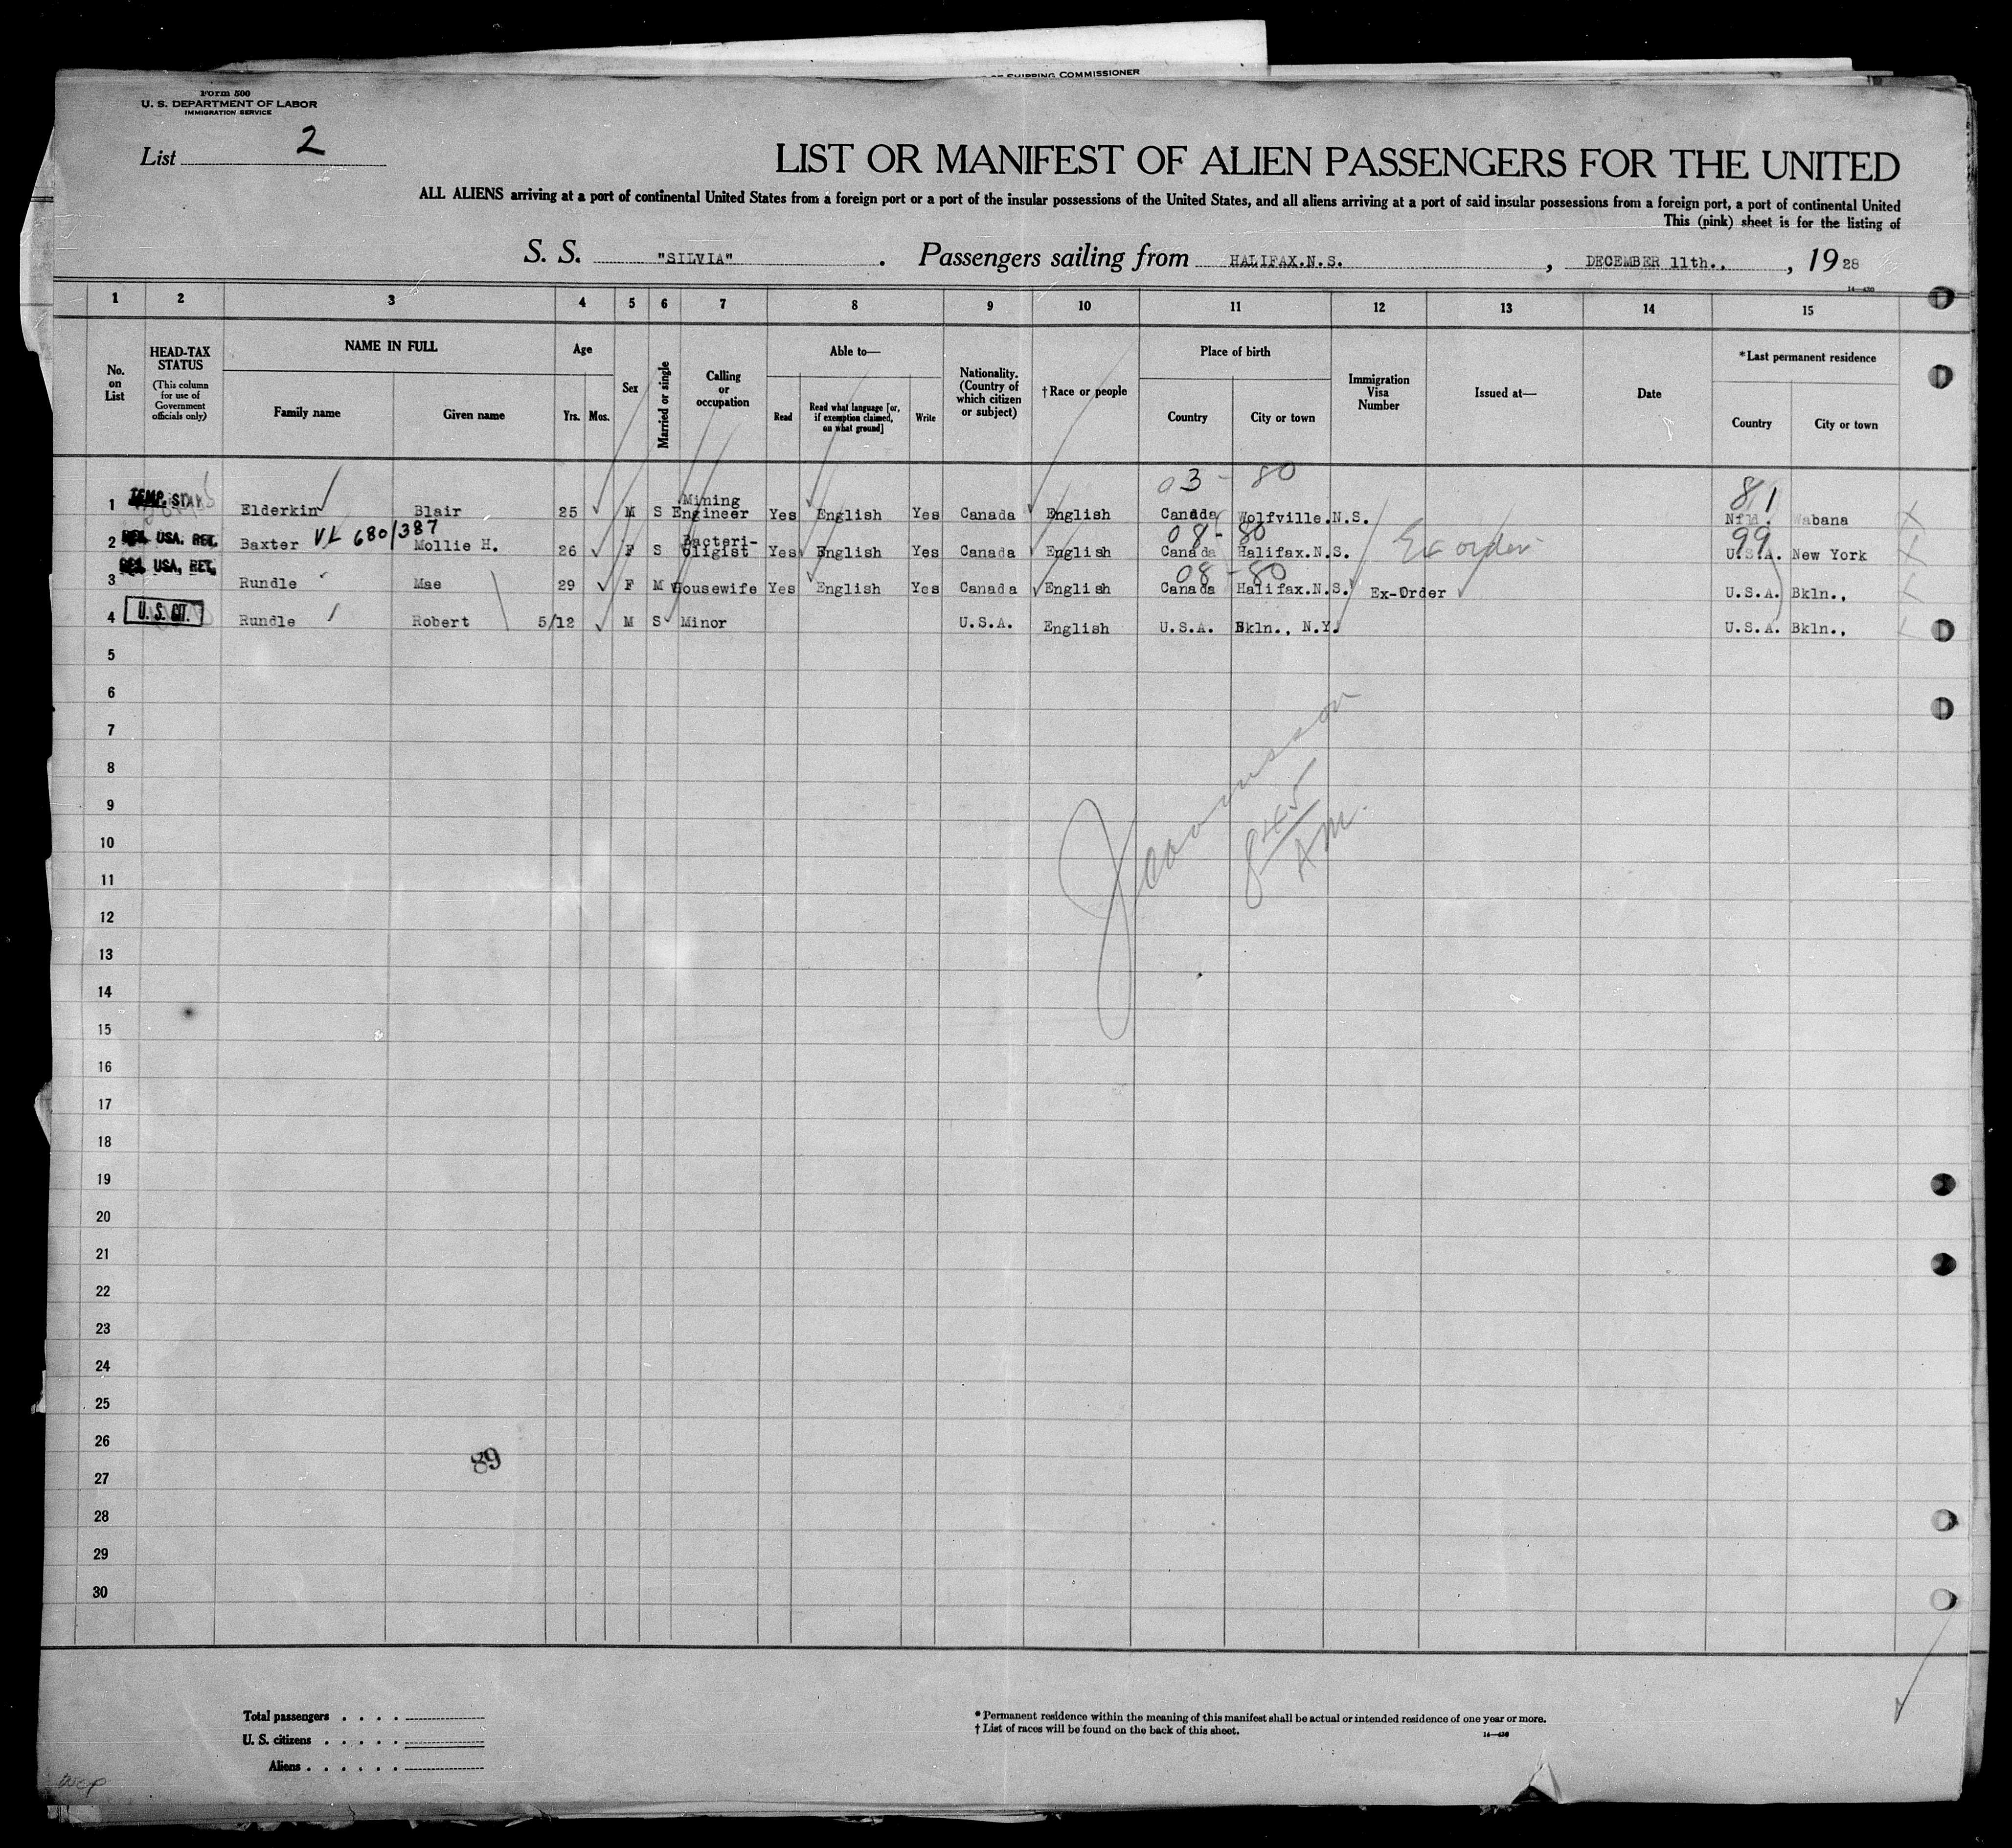 OF SHIPPING COMMISSIONER
Form 500
U. S. DEPARTMENT OF LABOR
IMMIGRATION SERVICE
List 2
LIST OR MANIFEST OF ALIEN PASSENGERS FOR THE UNITED
ALL ALIENS arriving at a port of continental United States from a foreign port or a port of the insular possessions of the United States, and all aliens arriving at a port of said insular possessions from a foreign port, a port of continental United
This (pink) sheet is for the listing of
S. S. "SILVIA" . Passengers sailing from HALIFAX.N.S. , DECEMBER 11th., , 19 28
14—430
1 2 3 4 5 6 7 8 9 10 11 12 13 14 15
No. on List
HEAD-TAX STATUS
(This column for use of Government officials only)
NAME IN FULL
Family name Given name
Age
Yrs. Mos.
Sex
Married or single
Calling or occupation
Able to—
Read
Read what language [or, if exemption claimed, on what ground]
Write
Nationality. (Country of which citizen or subject)
†Race or people
Place of birth
Country City or town
Immigration Visa Number
Issued at—
Date
*Last permanent residence
Country City or town
03 - 80 81
1 TEMP. STAY Elderkin Blair 25 M S Mining Engineer Yes English Yes Canada English Canada Wolfville.N.S. Nfld. Wabana
VL 680/387 08 - 80 99
2 USA. RET. Baxter Mollie H. 26 F S Bacteri-oligist Yes English Yes Canada English Canada Halifax.N.S. Ex order U.S.A. New York
08 - 80
3 USA, RET. Rundle Mae 29 F M Housewife Yes English Yes Canada English Canada Halifax.N.S. Ex-Order U.S.A. Bkln.,
4 U. S. CIT. Rundle Robert 5/12 M S Minor U.S.A. English U.S.A. Bkln., N.Y. U.S.A. Bkln.,
5
6
7
8
9
10
11
12
13
14
15
16
17
18
19
20
21
22
23
24
25
26
27
28
29
30
8 45
AM.
89
Total passengers . . . .
U. S. citizens . . . . .
Aliens . . . . . .
* Permanent residence within the meaning of this manifest shall be actual or intended residence of one year or more.
† List of races will be found on the back of this sheet.
14—430